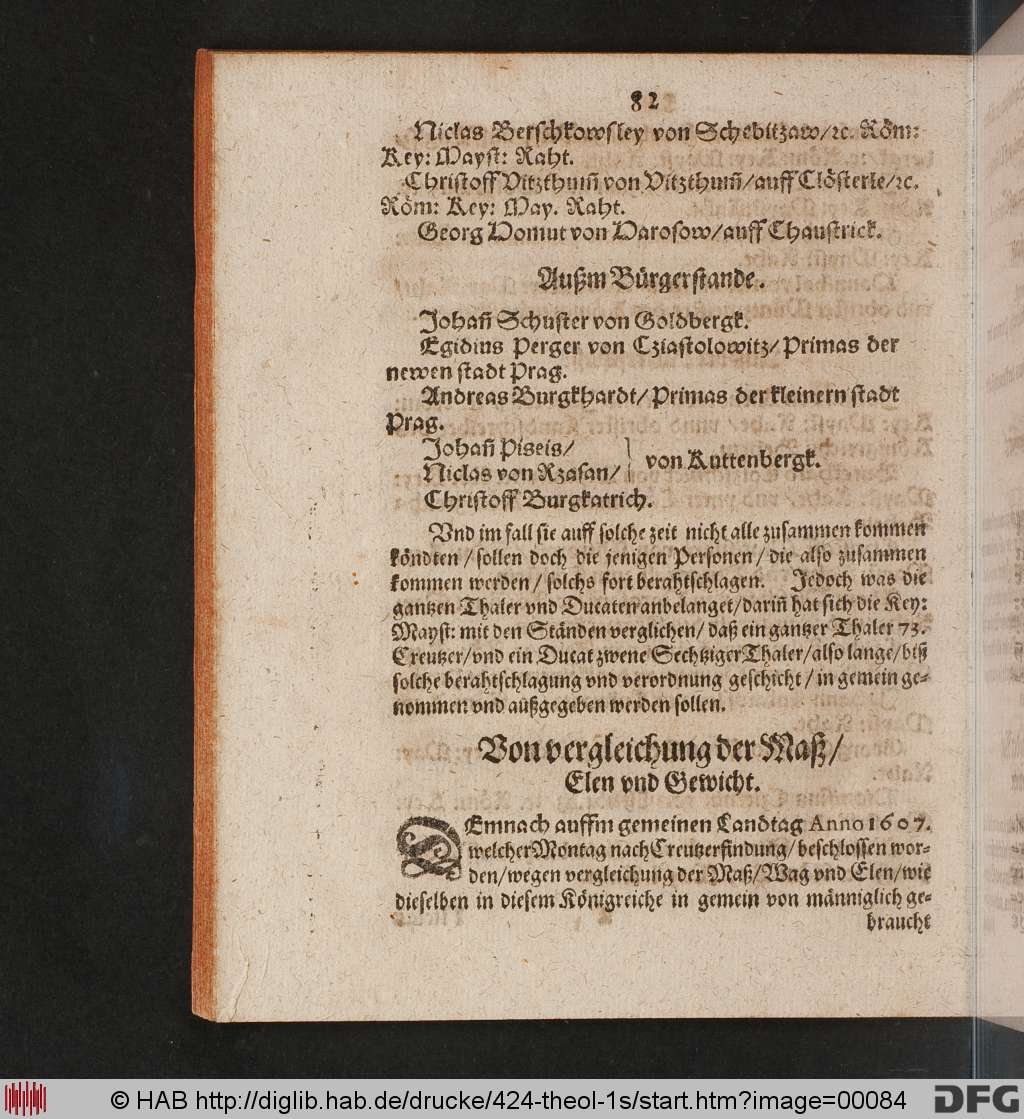 82
Niclas Berschkowsley von Schebitzaw/ꝛc. Röm:
Key: Mayst: Raht.
Christoff Vitzthum̃ von Vitzthum̃/auff Clösterle/ꝛc.
Röm: Key: May. Raht.
Georg Homut von Harosow/auff Chaustrick.
Außm Bürgerstande.
Johañ Schuster von Goldbergk.
Egidius Perger von Cziastolowitz/ Primas der
newen stadt Prag.
Andreas Burgkhardt/ Primas der kleinern stadt
Prag.
Johañ Piseis/
Niclas von Rzasan/ } von Kuttenbergk.
Christoff Burgkatrich.
Vnd im fall sie auff solche zeit nicht alle zusammen kommen
köndten/ sollen doch die jenigen Personen/ die also zusammen
kommen werden/ solchs fort berahtschlagen. Jedoch was die
gantzen Thaler vnd Ducaten anbelanget/ dariñ hat sich die Key:
Mayst: mit den Ständen verglichen/ daß ein gantzer Thaler 73.
Creutzer/ vnd ein Ducat zwene Sechtziger Thaler/ also lange/ biß
solche berahtschlagung vnd verordnung geschicht/ in gemein ge-
nommen vnd außgegeben werden sollen.
Von vergleichung der Maß/
Elen vnd Gewicht.
DEmnach auffm gemeinen Landtag Anno 1607.
welcher Montag nach Creutzerfindung/ beschlossen wor-
den/ wegen vergleichung der Maß/ Wag vnd Elen/ wie
dieselben in diesem Königreiche in gemein von männiglich ge-
braucht
© HAB http://diglib.hab.de/drucke/424-theol-1s/start.htm?image=00084
DFG